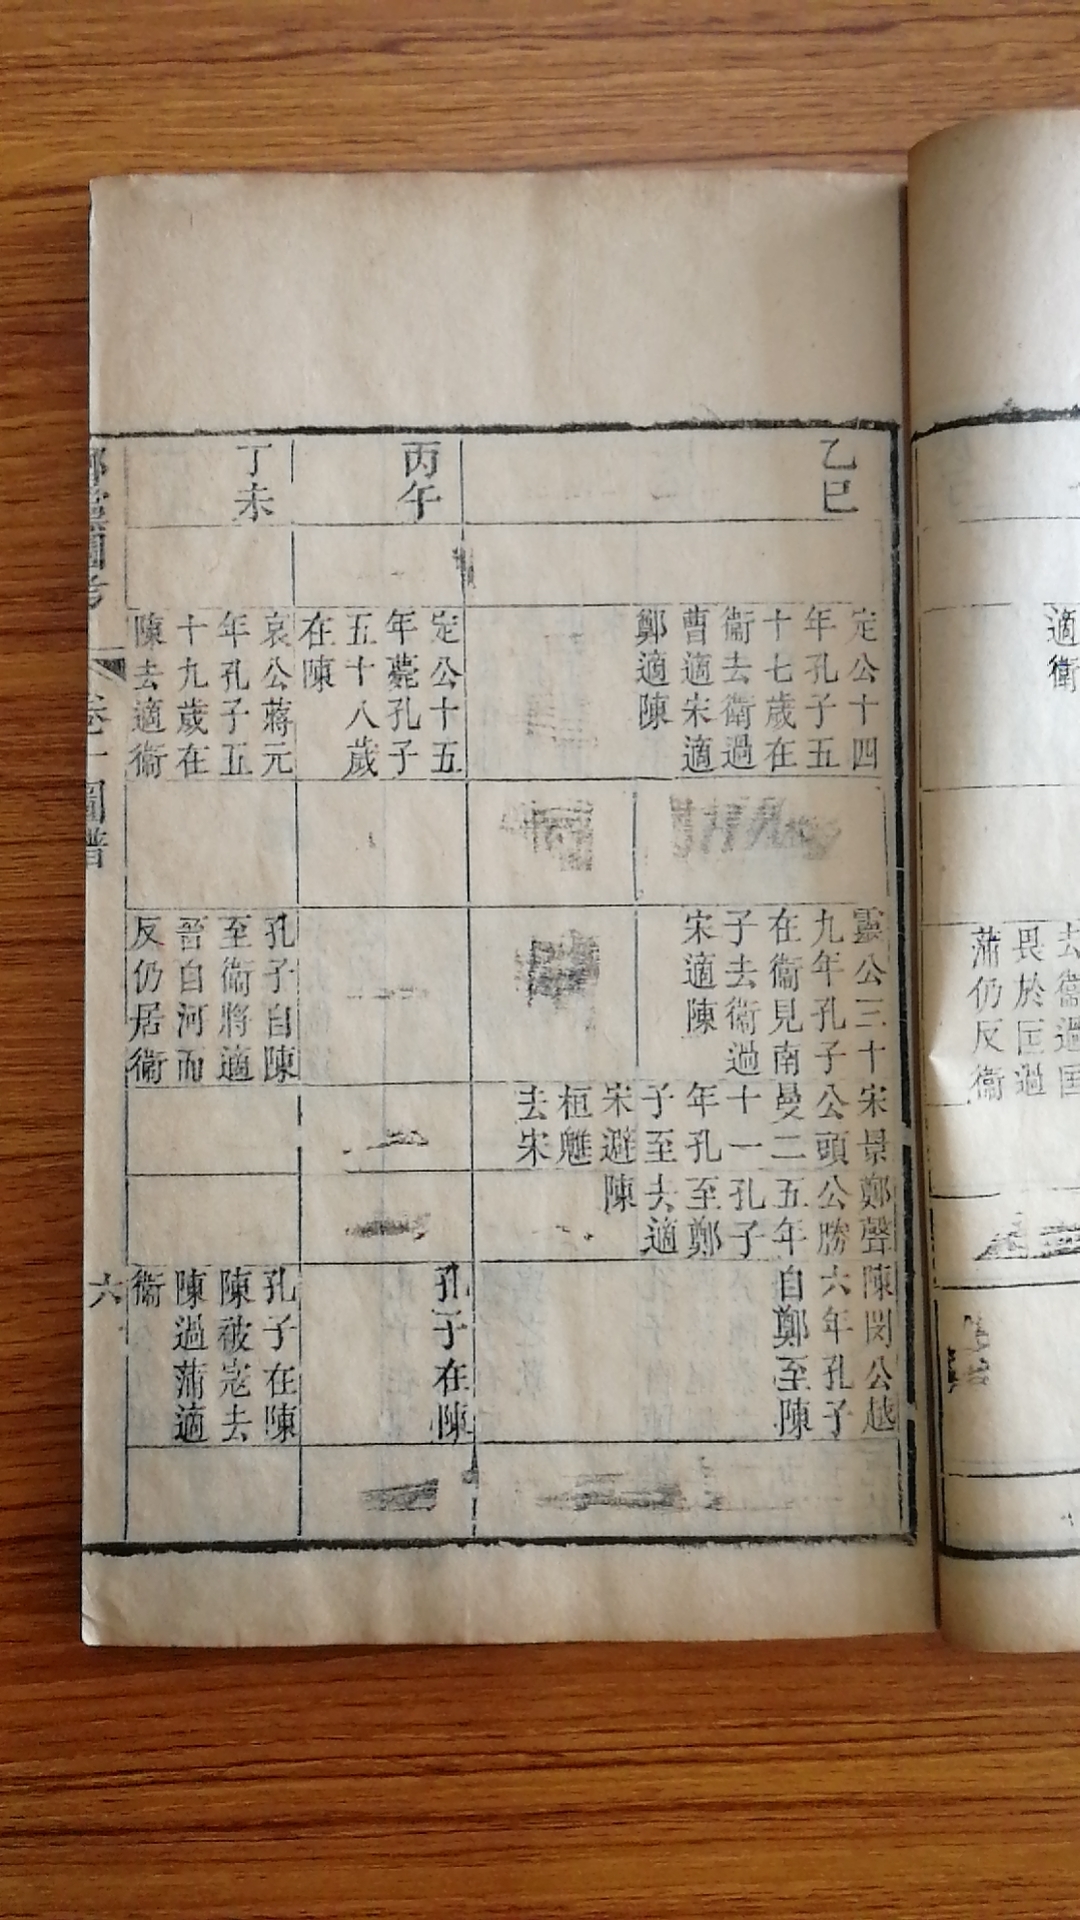 適衛
去衛過匡
畏於匡過
蒲仍反衛
乙巳
定公十四
年孔子五
十七歲在
衛去衛過
曹適宋適
鄭適陳
靈公三十
九年孔子
在衛見南
子去衛過
宋適陳
宋景
公頭
曼二
十一
年孔
子至
宋避
桓魋
去宋
鄭聲
公勝
五年
孔子
至鄭
去適
陳
陳閔公越
六年孔子
自鄭至陳
丙午
定公十五
年薨孔子
五十八歲
在陳
孔子在陳
丁未
哀公蔣元
年孔子五
十九歲在
陳去適衛
孔子自陳
至衛將適
晉自河而
反仍居衛
孔子在陳
陳被寇去
陳過蒲適
衛
鄉黨圖考 卷一 圖譜 六